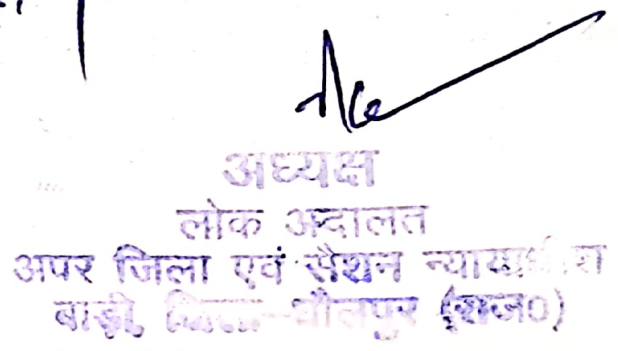 अध्यक्ष
लोक अदालत
अपर जिला एवं सैशन न्यायाधीश
बाड़ी, जिला-धौलपुर (राज०)